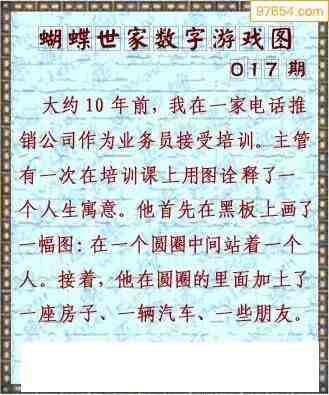 97654.com
蝴蝶世家数字游戏图
017期
大约10年前，我在一家电话推
销公司作为业务员接受培训。主管
有一次在培训课上用图诠释了一
个人生寓意。他首先在黑板上画了
一幅图：在一个圆圈中间站着一个
人。接着，他在圆圈的里面加上了
一座房子、一辆汽车、一些朋友。